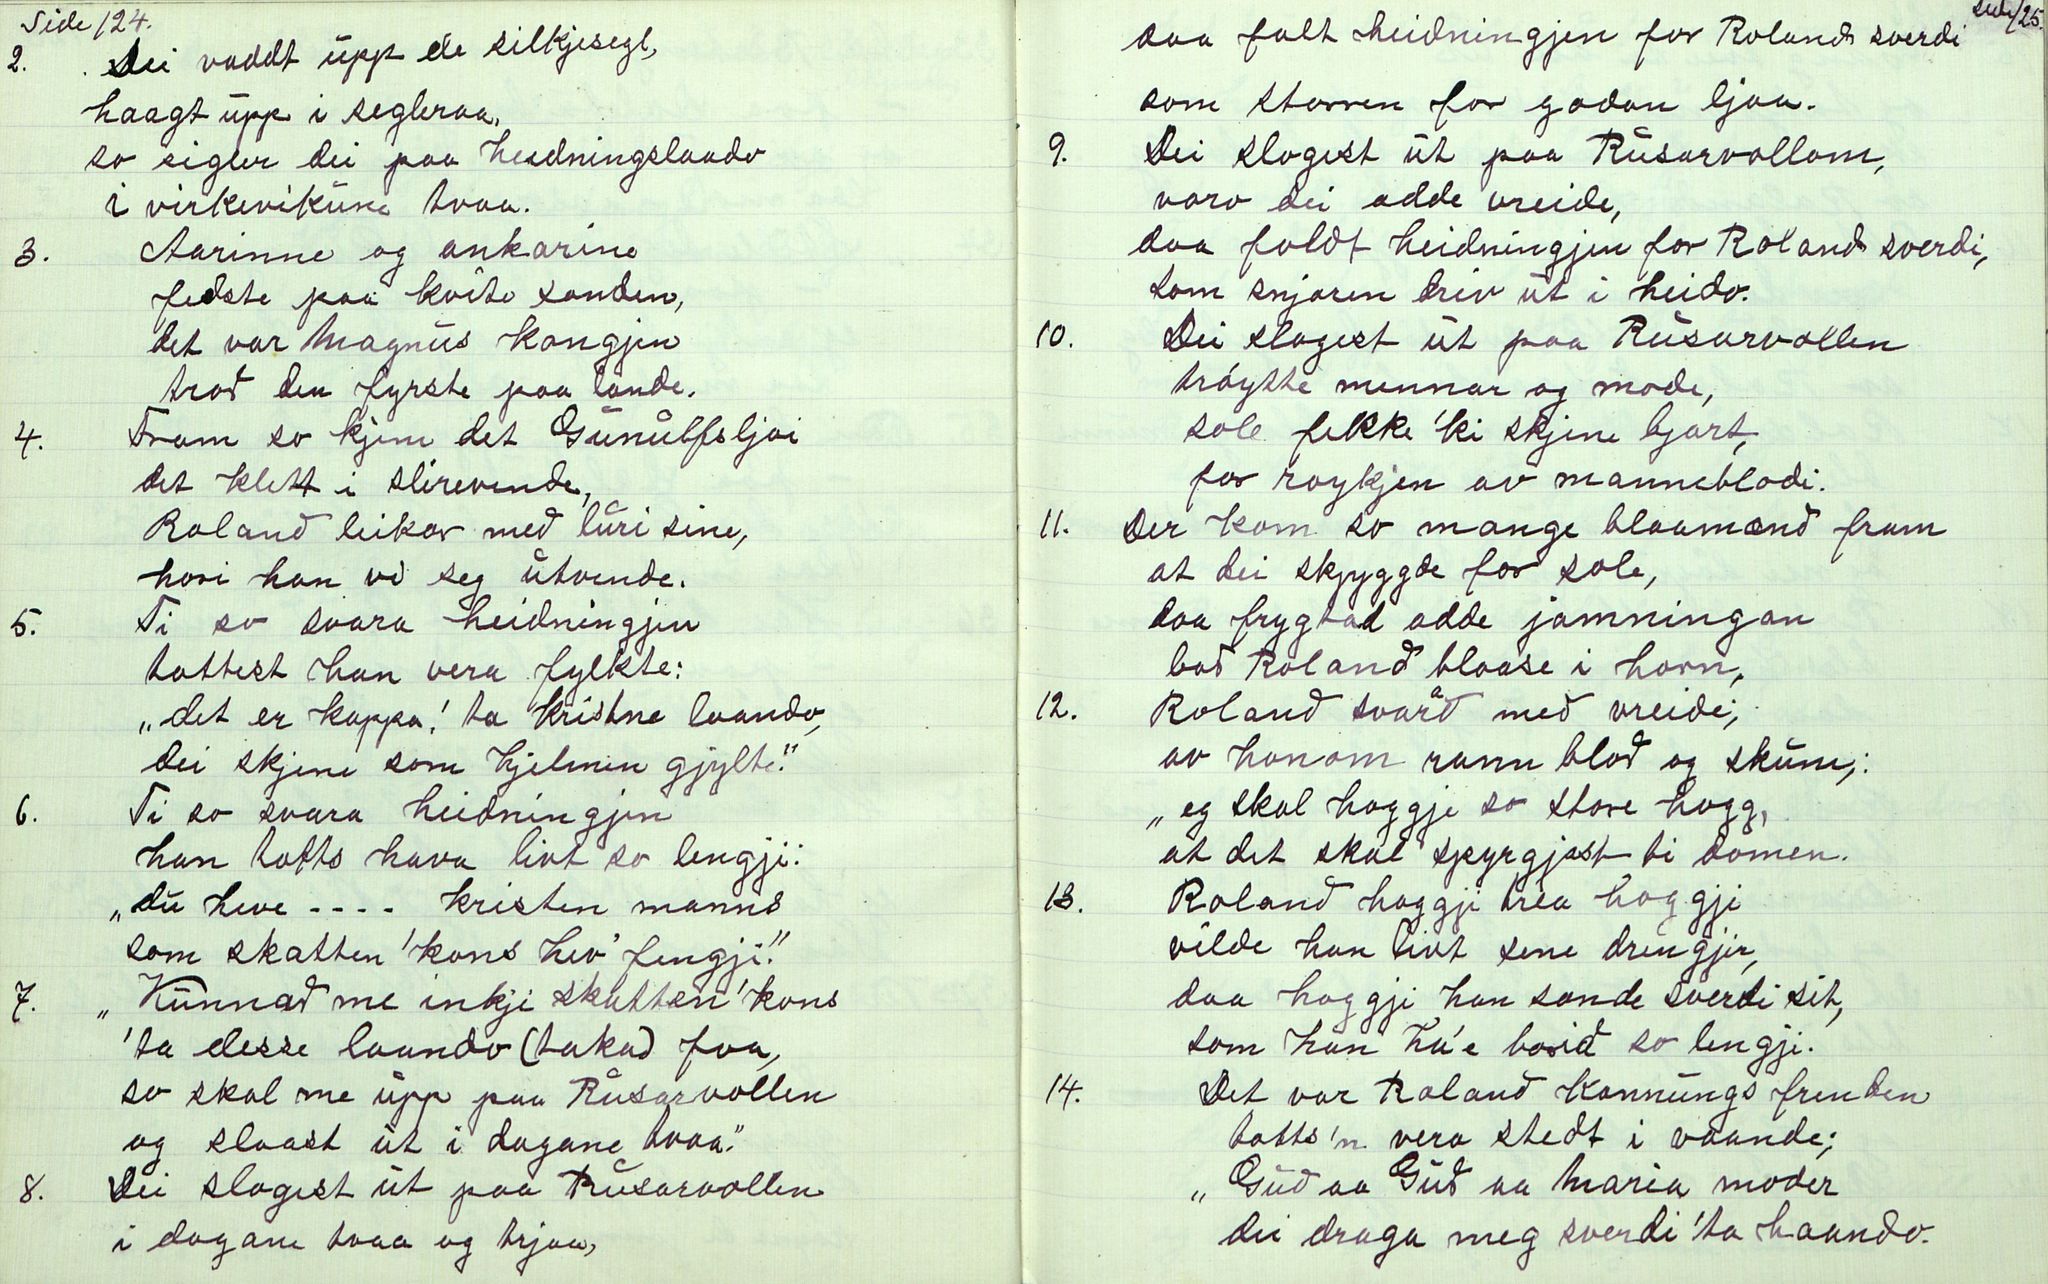 Side 124.
2. Dei vaddt upp de silkjesegl,
haagt upp i segleraa,
so sigler dei paa heidningslaado
i virkevikune tvaa.
3. Aarinne og ankarine
fedste paa kvite sanden,
det var Magnus kongjen
trad den fyrste paa lande.
4. Fram so kjem det Gunulfsljoi
det klett i slirevende,
Roland leikar med luri sine,
hori han vi seg utvende.
5. Ti so svara heidningjen
tottest han vera fylkte:
„det er kappa! ta kristne laando,
dei skjene som hjelmen gjylte."
6. Ti so svara heidningjen
han totts hava livt so lengji:
„du heve - - - - kristen manns
som skatten 'kons hev' fengji."
7. „Kunnad me inkji skatten 'kons
'ta desse laando (taka) faa,
so skal me upp paa Rusarvollen
og slaast ut i dagane tvaa."
8. Dei slogest ut paa Rusarvollen
i dagane tvaa og trjaa,
side 125.
daa falt heidningjen for Rolands sverdi
som storren for godan ljaa.
9. Dei slogest ut paa Rusarvollom,
varo dei adde vreide,
daa foldt heidningjen for Rolands sverdi,
som snjoren driv ut i heido.
10. Dei slogest ut paa Rusarvollen
tröytte mennar og mode,
sole fekke 'ki skjine bjart,
for roykjen av manneblodi.
11. Der kom so mange blaamend fram
at dei skpyggde for sole,
daa frygtad adde jamningan
bad Roland blaase i horn,
12. Roland svård med vreidi,
av honom rann blod og skum;:
„eg skal hoggje so store hogg,
at det skal spyrgjast ti domen.
13. Roland hoggji trea hoggji
vilde han livt sene drengjir,
daa hoggji han sande sverdi sit,
som han ha'e borid so lengji.
14. Det var Roland Konnungs frenden
totts'n vera stedt i vaande;
„Gud aa Gud aa Maria moder
dei draga meg sverdi 'ta haando.